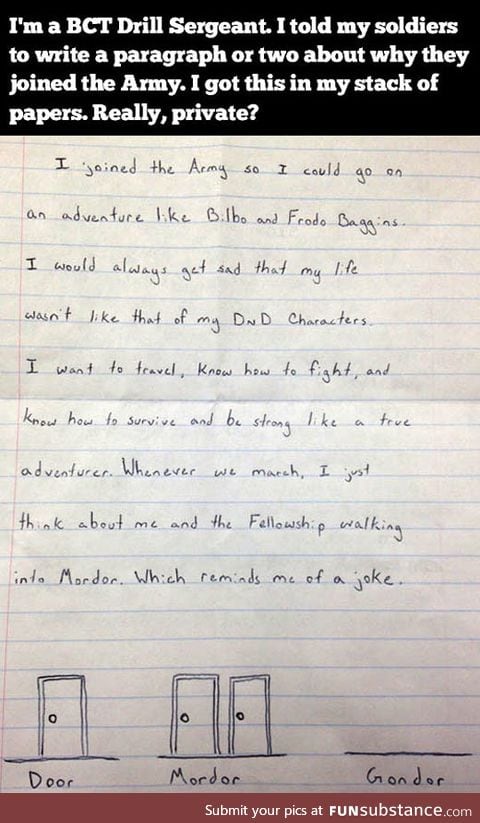 I'm a BCT Drill Sergeant. I told my soldiers
to write a paragraph or two about why they
joined the Army. I got this in my stack of
papers. Really, private?
I joined the Army so I could go on
an adventure like Bilbo and Frodo Baggins.
I would always get sad that my life
wasn't like that of my DND Characters.
I want to travel, know how to fight, and
know how to survive and be strong like a true
adventurer. Whenever we march, I just
think about me and the Fellowship walking
into Mordor. Which reminds me of a joke.
Door Mordor Gondor
Submit your pics at FUNsubstance.com